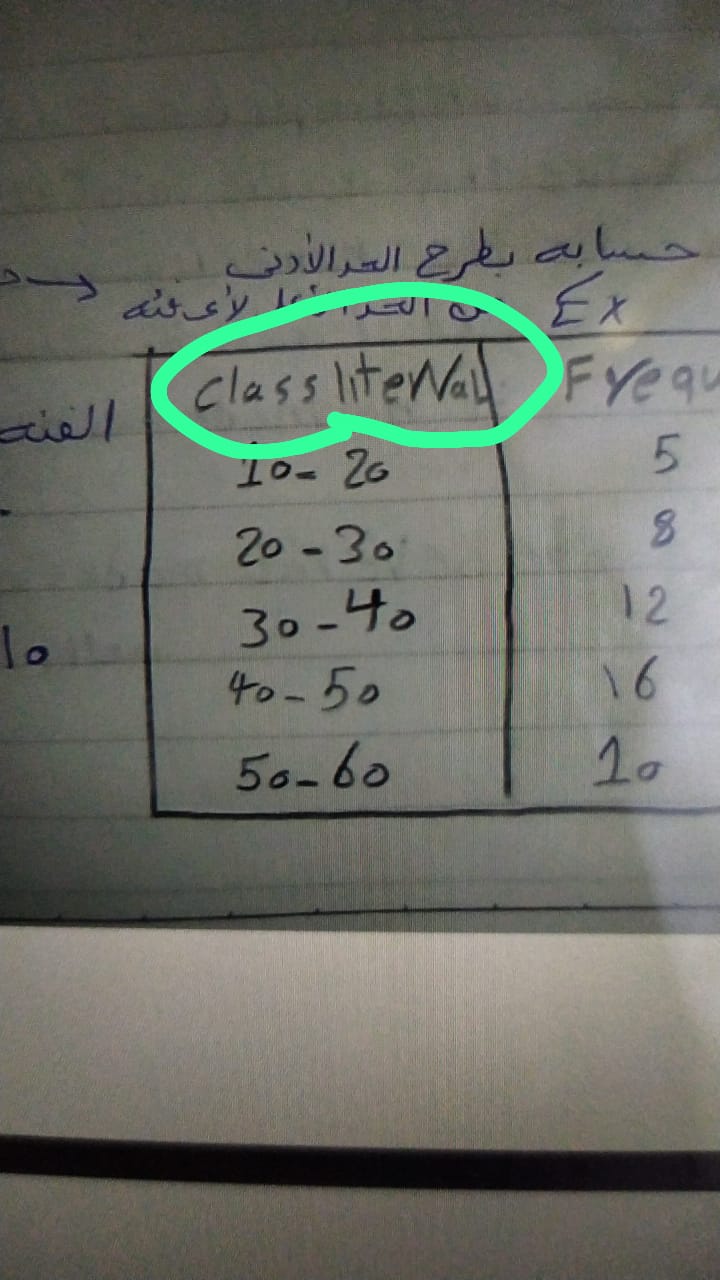 حسابه بطرح الحد الأدنى
من الحد الأعلى لأي فئة Ex
Class liteNal Frequ
الفئة
10- 20 5
20 - 30 8
30 - 40 12
10
40 - 50 16
50 - 60 10